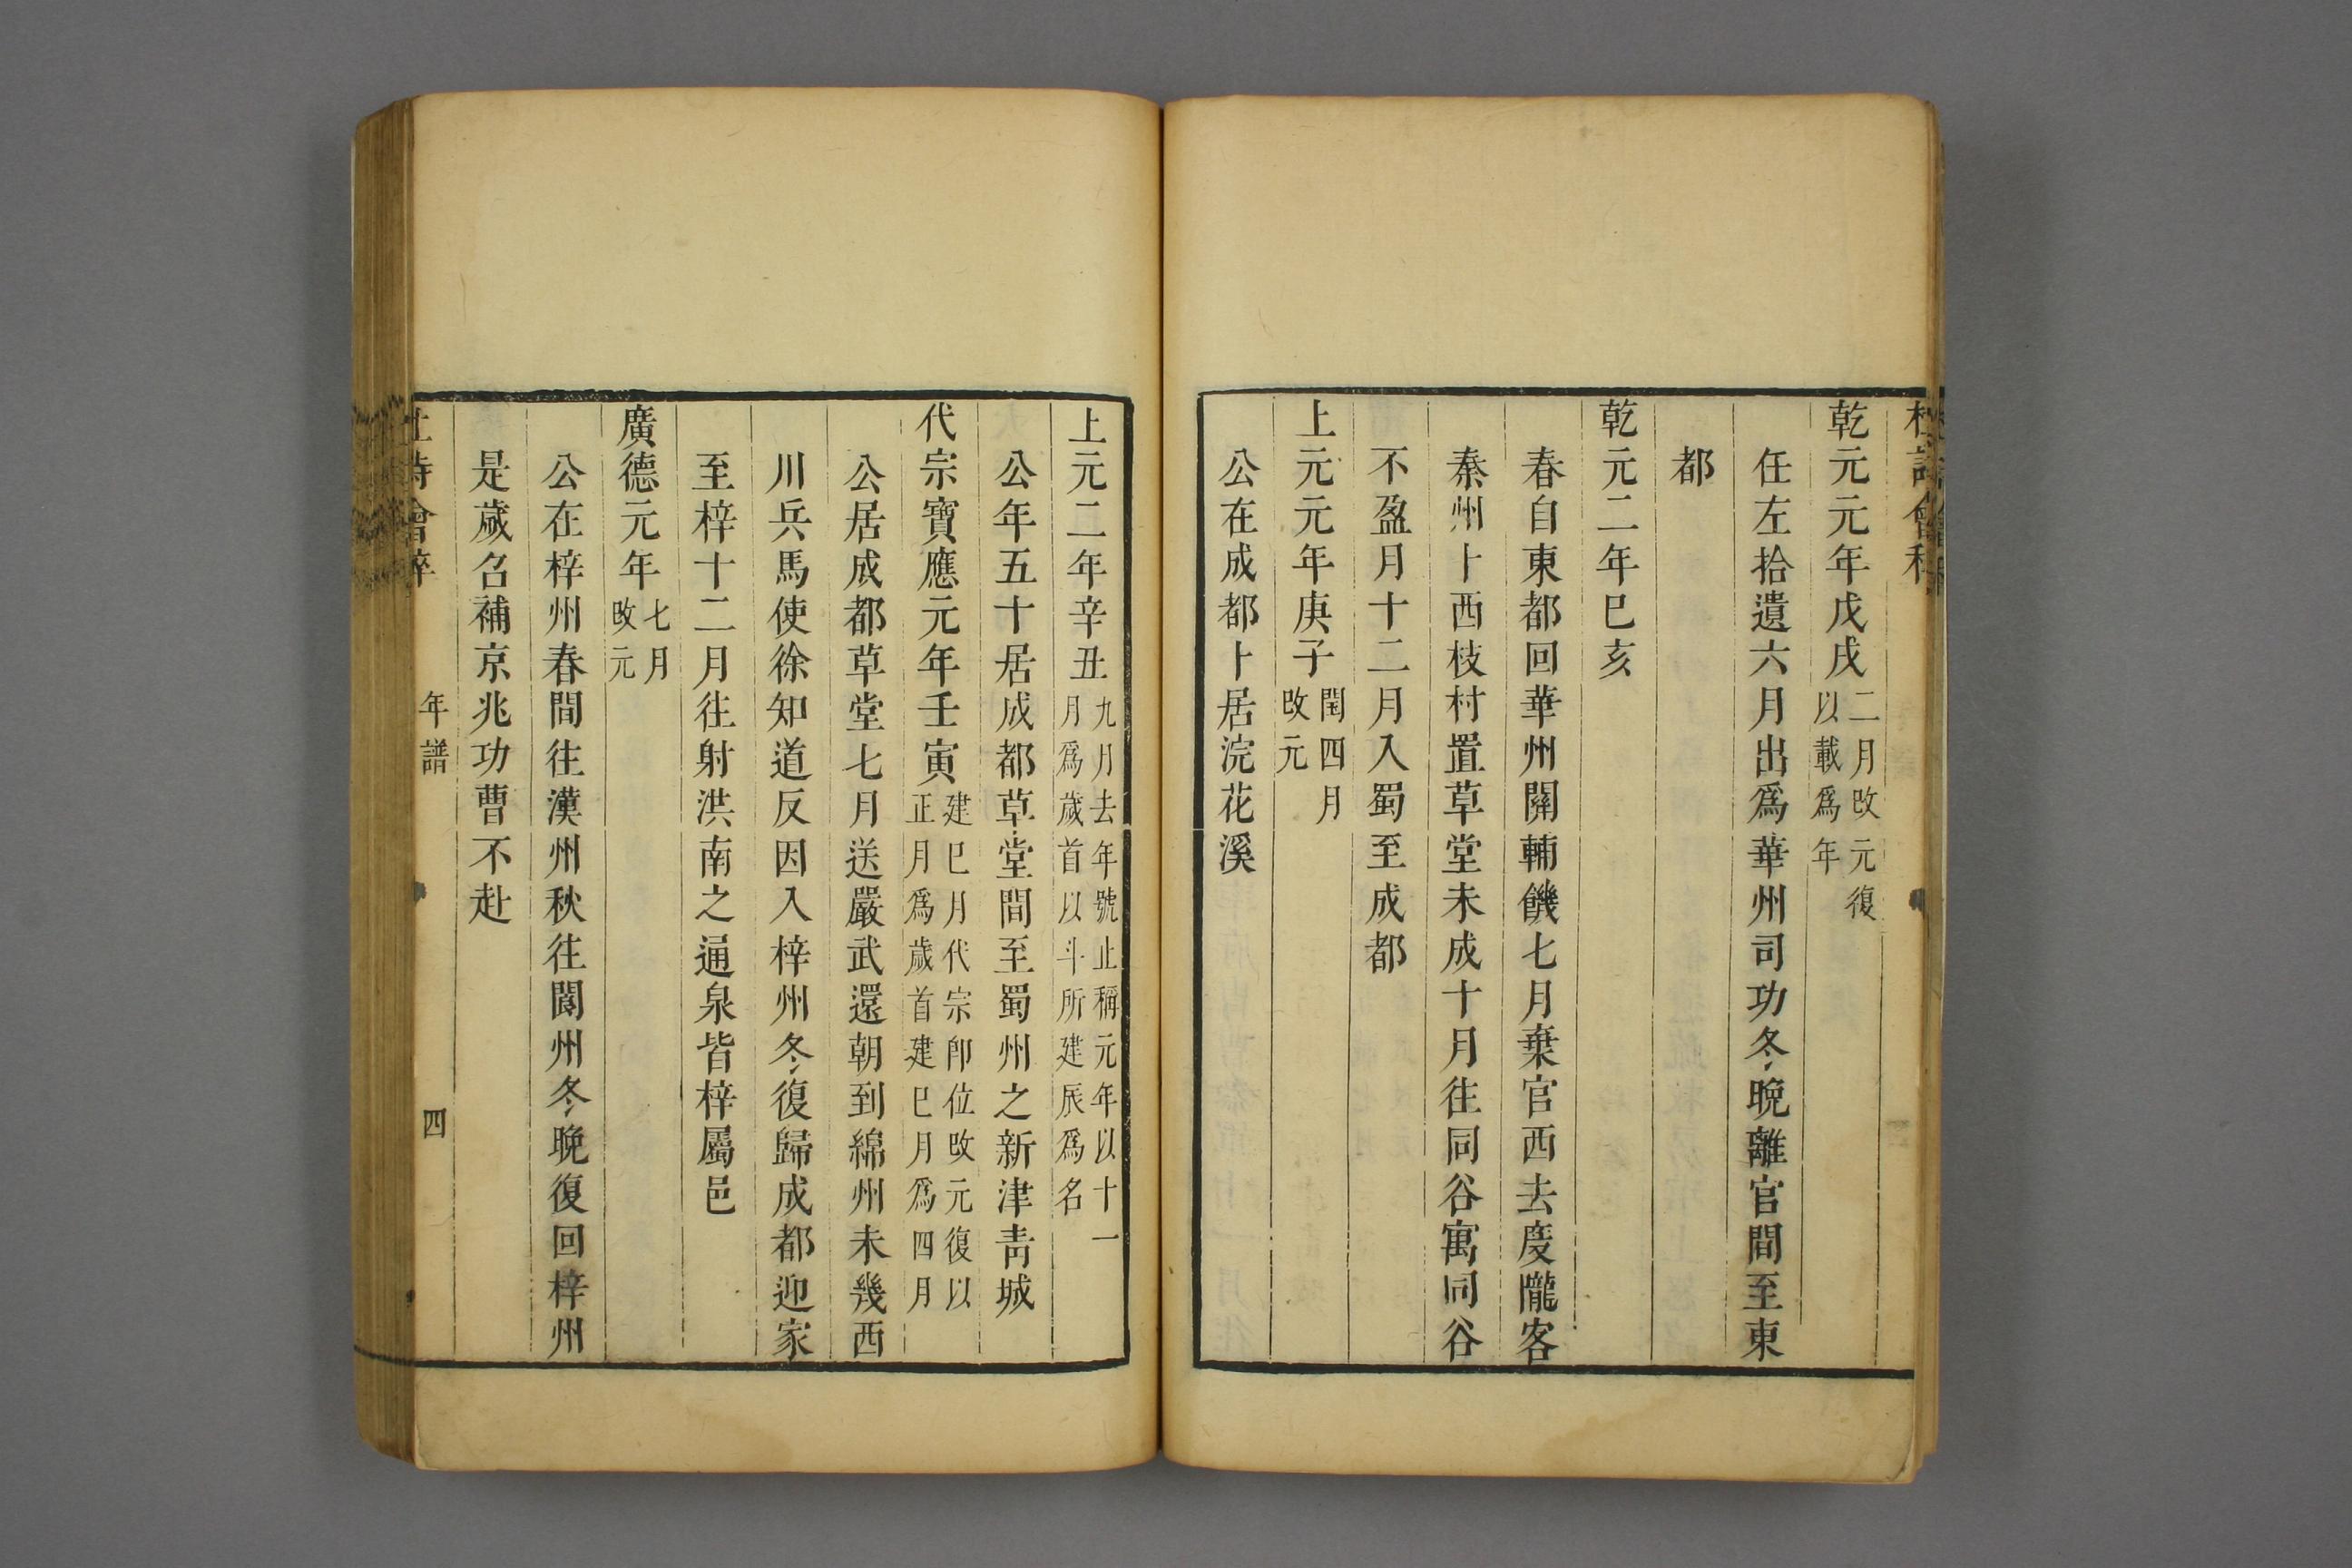 乾元元年戊戌二月改元復以載爲年
任左拾遺六月出爲華州司功冬晚離官間至東
都
乾元二年巳亥
春自東都回華州關輔饑七月棄官西去度隴客
秦州卜西枝村置草堂未成十月往同谷寓同谷
不盈月十二月入蜀至成都
上元元年庚子閏四月改元
公在成都卜居浣花溪
上元二年辛丑九月去年號止稱元年以十一月爲歲首以斗所建辰爲名
公年五十居成都草堂間至蜀州之新津靑城
代宗寶應元年壬寅建巳月代宗卽位改元復以正月爲歲首建巳月爲四月
公居成都草堂七月送嚴武還朝到綿州未幾西
川兵馬使徐知道反因入梓州冬復歸成都迎家
至梓十二月往射洪南之通泉皆梓屬邑
廣德元年七月改元
公在梓州春間往漢州秋往閬州冬晚復回梓州
是歲召補京兆功曹不赴
杜詩會稡
年譜
四